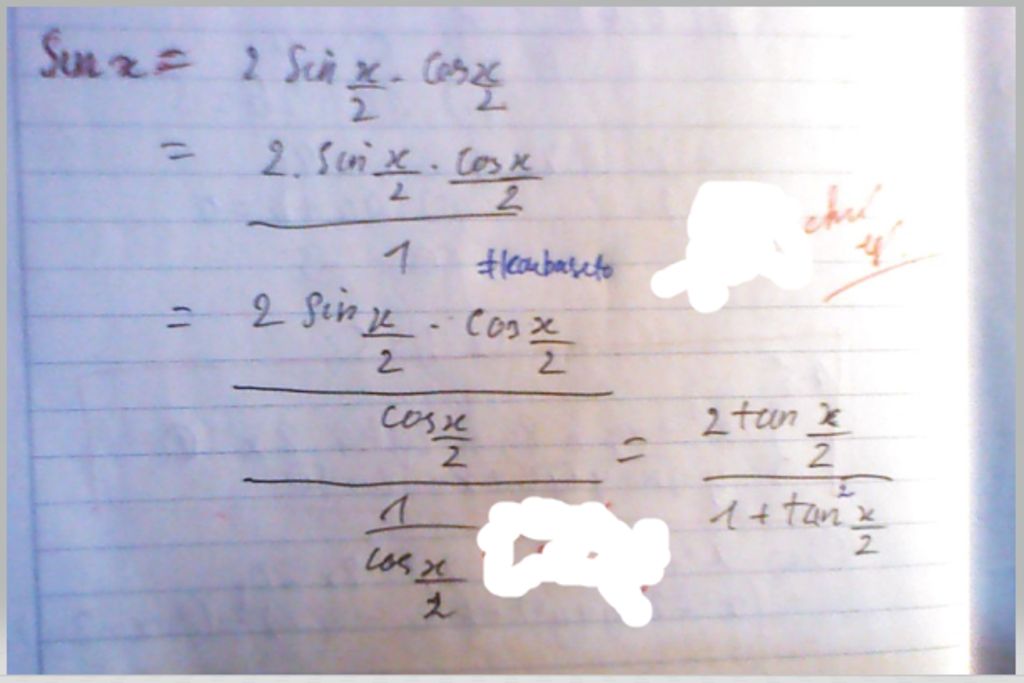 Sin x = 2 Sin x/2 . Cos x/2
= 2. Sin x/2 . Cos x/2
1
= 2 Sin x/2 . Cos x/2
cos x/2
1
cos x/2
= 2 tan x/2
1 + tan² x/2